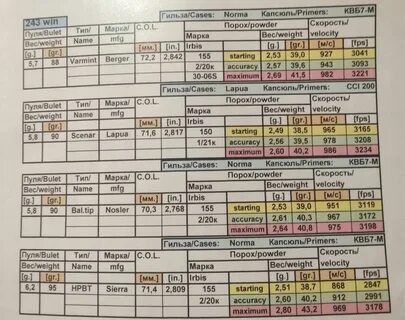 243 win
Гильза/Cases: Norma Капсюль/Primers: КВБ7-М
Пуля/Bulet Тип/ Марка/ C.O.L. Порох/powder Скорость/
Вес/weight Name mfg Марка Вес/weight velocity
[g.] [gr.] [мм.] [in.] Irbis [g.] [gr.] [м/с] [fps]
5,7 88 Varmint Berger 72,2 2,842 155 starting 2,53 39,0 927 3041
2/20к accuracy 2,57 39,6 943 3093
30-06S maximum 2,69 41,5 982 3221
Гильза/Cases: Lapua Капсюль/Primers: CCI 200
Пуля/Bulet Тип/ Марка/ C.O.L. Порох/powder Скорость/
Вес/weight Name mfg Марка Вес/weight velocity
[g.] [gr.] [мм.] [in.] Irbis [g.] [gr.] [м/с] [fps]
5,8 90 Scenar Lapua 71,6 2,817 150 starting 2,49 38,5 965 3165
1/21к accuracy 2,56 39,5 978 3208
maximum 2,60 40,2 986 3234
Гильза/Cases: Norma Капсюль/Primers: КВБ7-М
Пуля/Bulet Тип/ Марка/ C.O.L. Порох/powder Скорость/
Вес/weight Name mfg Марка Вес/weight velocity
[g.] [gr.] [мм.] [in.] Irbis [g.] [gr.] [м/с] [fps]
5,8 90 Bal.tip Nosler 70,3 2,768 155 starting 2,53 39,0 951 3119
2/20к accuracy 2,61 40,3 967 3172
maximum 2,64 40,8 975 3198
Гильза/Cases: Norma Капсюль/Primers: КВБ7-М
Пуля/Bulet Тип/ Марка/ C.O.L. Порох/powder Скорость/
Вес/weight Name mfg Марка Вес/weight velocity
[g.] [gr.] [мм.] [in.] Irbis [g.] [gr.] [м/с] [fps]
6,2 95 HPBT Sierra 71,4 2,809 155 starting 2,51 38,7 868 2847
2/20к accuracy 2,60 40,2 912 2991
maximum 2,80 43,2 969 3178